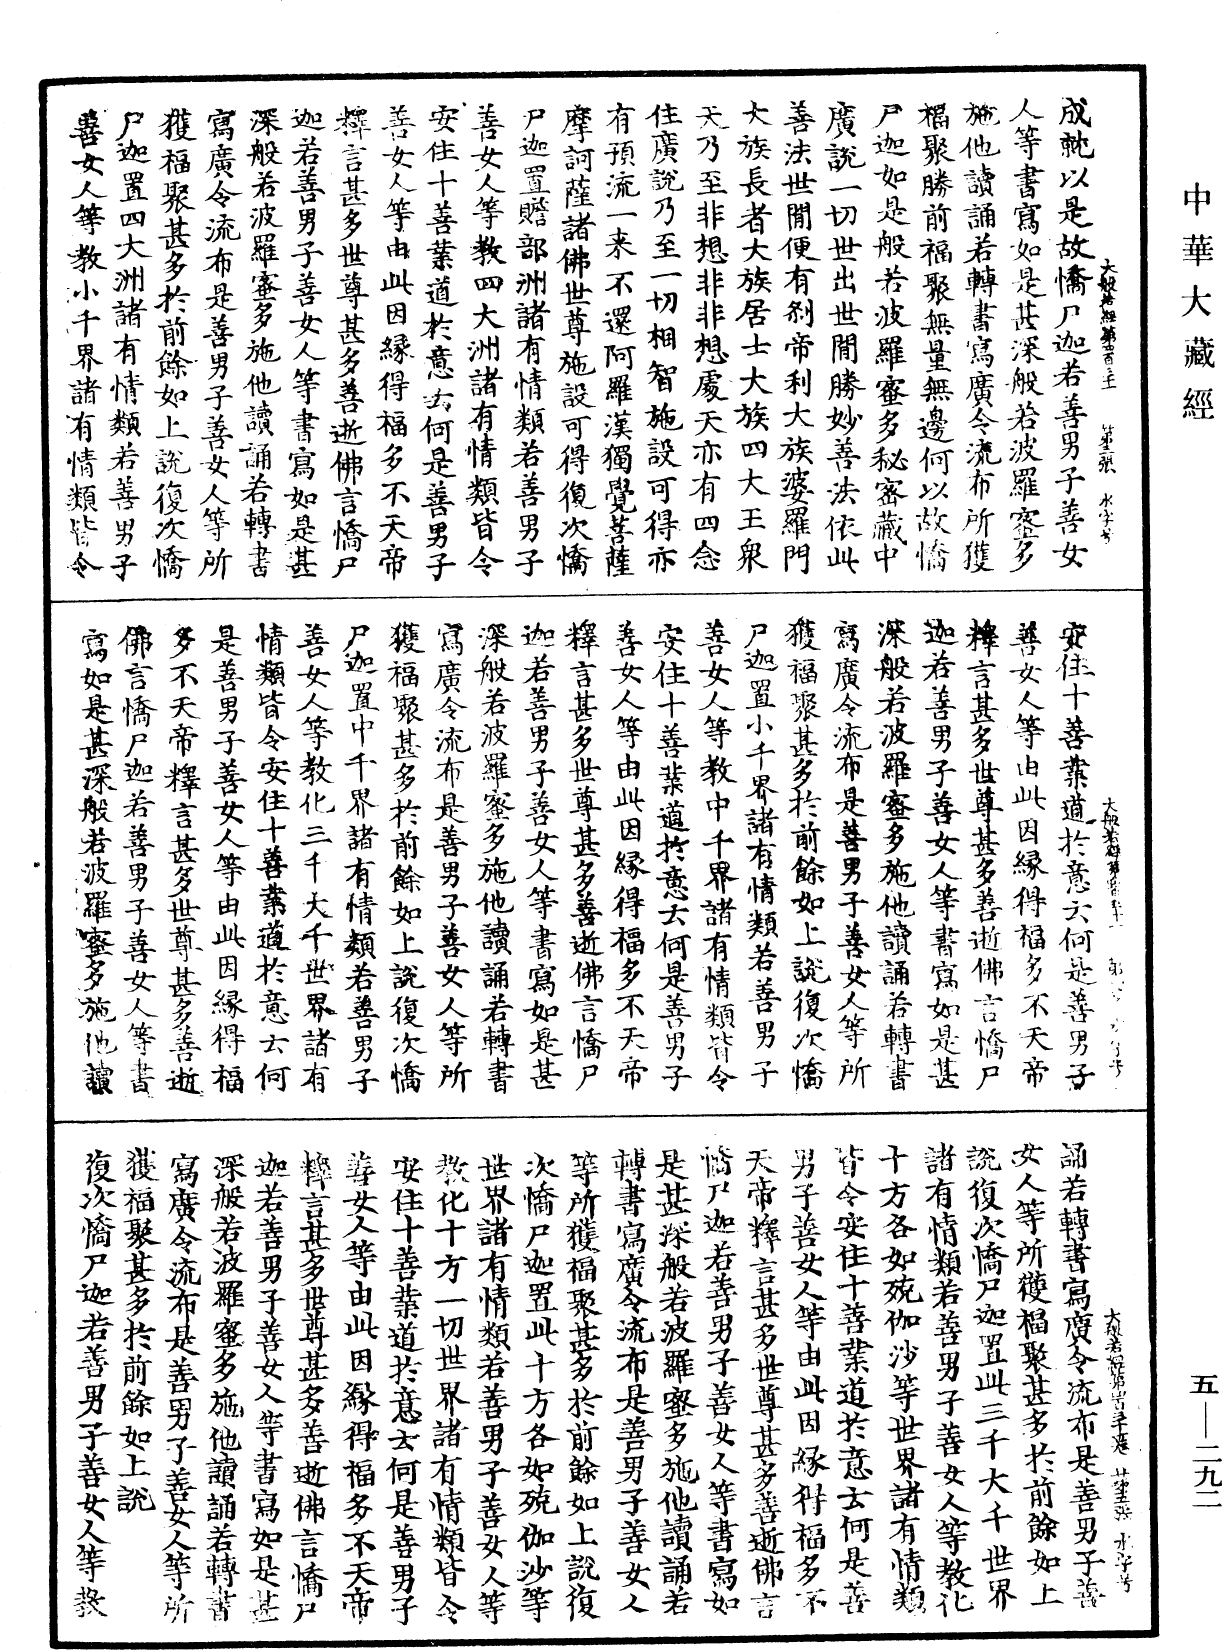 中華大藏經
成就以是故憍尸迦若善男子善女
人等書寫如是甚深般若波羅蜜多
施他讀誦若轉書寫廣令流布所獲
福聚勝前福聚無量無邊何以故憍
尸迦如是般若波羅蜜多秘密藏中
廣說一切世出世間勝妙善法依此
善法世間便有剎帝利大族婆羅門
大族長者大族居士大族四大王眾
天乃至非想非非想處天亦有四念
住廣說乃至一切相智施設可得亦
有預流一来不還阿羅漢獨覺菩薩
摩訶薩諸佛世尊施設可得復次憍
尸迦置贍部洲諸有情類若善男子
善女人等教四大洲諸有情類皆令
安住十善業道於意云何是善男子
善女人等由此因緣得福多不天帝
釋言甚多世尊甚多善逝佛言憍尸
迦若善男子善女人等書寫如是甚
深般若波羅蜜多施他讀誦若轉書
寫廣令流布是善男子善女人等所
獲福聚甚多於前餘如上說復次憍
尸迦置四大洲諸有情類若善男子
善女人等教小千界諸有情類皆令
安住十善業道於意云何是善男子
善女人等由此因緣得福多不天帝
釋言甚多世尊甚多善逝佛言憍尸
迦若善男子善女人等書寫如是甚
深般若波羅蜜多施他讀誦若轉書
寫廣令流布是善男子善女人等所
獲福聚甚多於前餘如上說復次憍
尸迦置小千界諸有情類若善男子
善女人等教中千界諸有情類皆令
安住十善業道於意云何是善男子
善女人等由此因緣得福多不天帝
釋言甚多世尊甚多善逝佛言憍尸
迦若善男子善女人等書寫如是甚
深般若波羅蜜多施他讀誦若轉書
寫廣令流布是善男子善女人等所
獲福聚甚多於前餘如上說復次憍
尸迦置中千界諸有情類若善男子
善女人等教化三千大千世界諸有
情類皆令安住十善業道於意云何
是善男子善女人等由此因緣得福
多不天帝釋言甚多世尊甚多善逝
佛言憍尸迦若善男子善女人等書
寫如是甚深般若波羅蜜多施他讀
誦若轉書寫廣令流布是善男子善
女人等所獲福聚甚多於前餘如上
說復次憍尸迦置此三千大千世界
諸有情類若善男子善女人等教化
十方各如殑伽沙等世界諸有情類
皆令安住十善業道於意云何是善
男子善女人等由此因緣得福多不
天帝釋言甚多世尊甚多善逝佛言
憍尸迦若善男子善女人等書寫如
是甚深般若波羅蜜多施他讀誦若
轉書寫廣令流布是善男子善女人
等所獲福聚甚多於前餘如上說復
次憍尸迦置此十方各如殑伽沙等
世界諸有情類若善男子善女人等
教化十方一切世界諸有情類皆令
安住十善業道於意云何是善男子
善女人等由此因緣得福多不天帝
釋言甚多世尊甚多善逝佛言憍尸
迦若善男子善女人等書寫如是甚
深般若波羅蜜多施他讀誦若轉書
寫廣令流布是善男子善女人等所
獲福聚甚多於前餘如上說
復次憍尸迦若善男子善女人等教
五—二九二